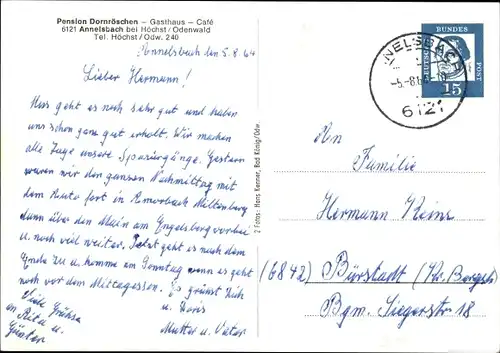 Pension Dornröschen – Gasthaus – Café
6121 Annelsbach bei Höchst/Odenwald
Tel. Höchst/Odw. 240
Annelsbach den 5.8.64
Lieber Hermann!
Uns geht es noch sehr gut und haben
uns schon ganz gut erholt. Wir machen
alle Tage unsere Spaziergänge. Gestern
waren wir den ganzen Nachmittag mit
dem Auto fort in Amorbach Miltenberg
dann über den Main am Engelsberg vorbei
u. noch viel weiter. Jetzt geht es nach dem
Ende zu u. komme am Sonntag wenn es geht
noch vor dem Mittagessen. Es grüsst Dich
u. Doris
Mutter u. Vater
Viele Grüsse
an Rita u.
Günter
2 Fotos: Hans Renner, Bad König/Odw.
DEUTSCHE
BUNDES
POST
15
ANNELSBACH
-5.-8.6
6121
An
Familie
Hermann Heinz
(6842) Bürstadt (Kr. Bergstr.)
Bgm. Siegerstr 18